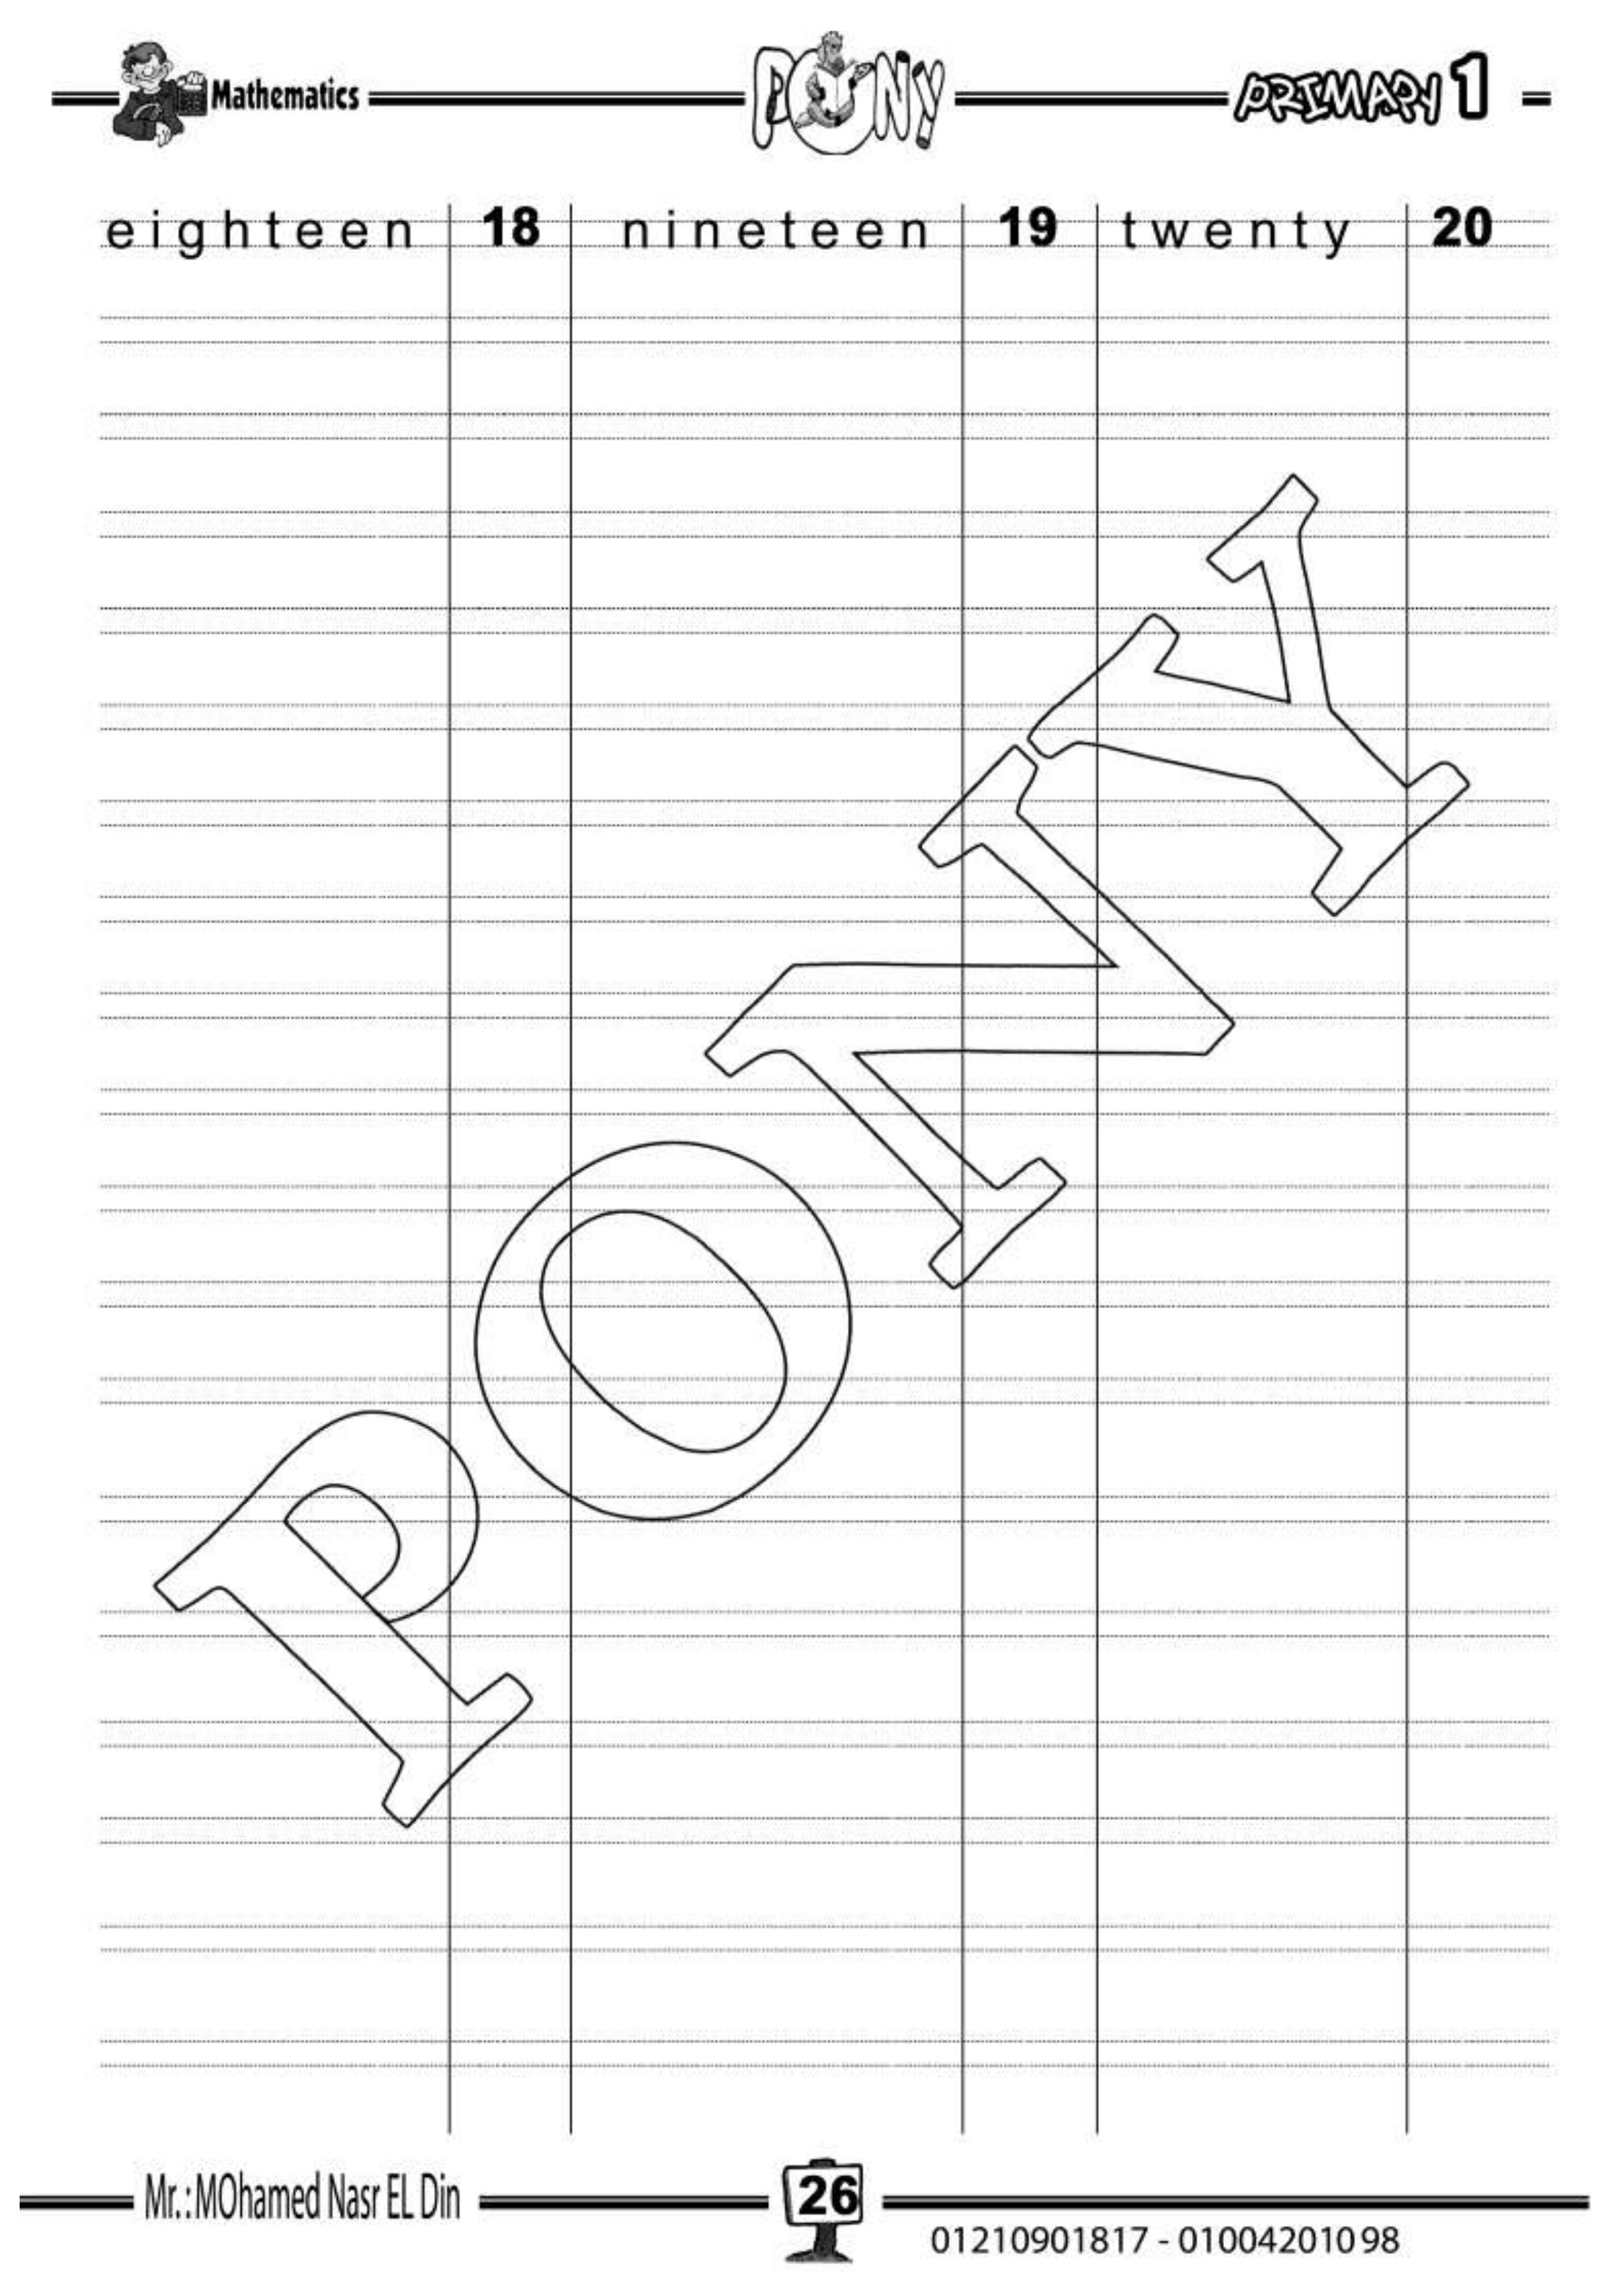 Mathematics PONY PRIMARY 1
eighteen 18 nineteen 19 twenty 20
PONY
Mr.:MOhamed Nasr EL Din 26
01210901817 - 01004201098